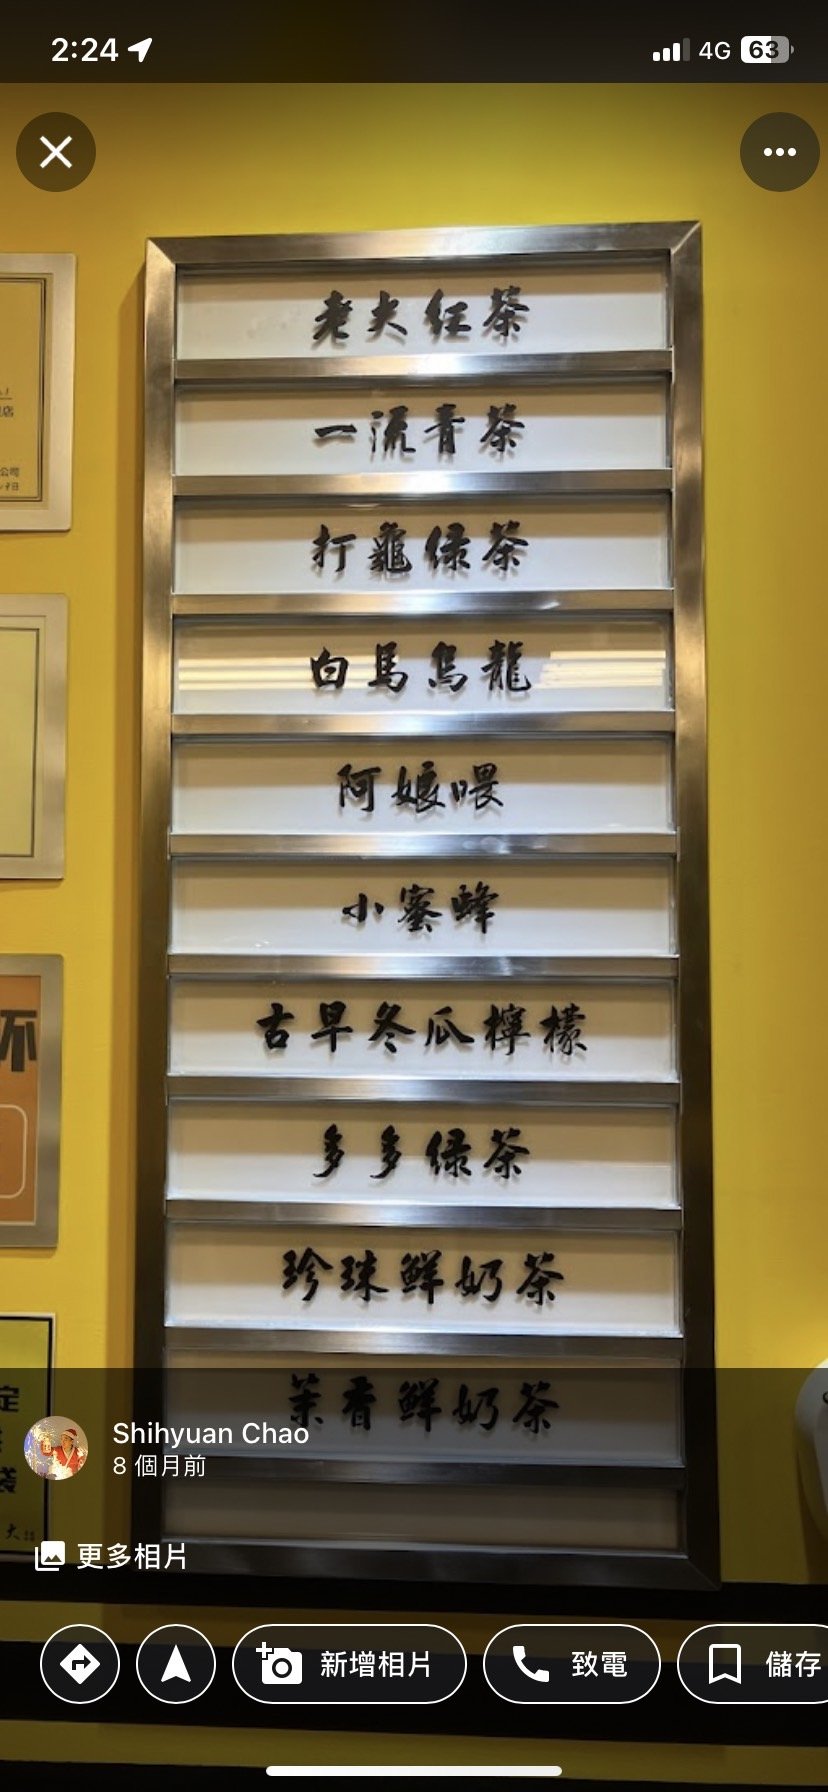 2:24
4G
63
老夫红茶
一流青茶
打龜绿茶
白馬烏龍
阿娘喂
小蜜蜂
古早冬瓜檸檬
多多绿茶
珍珠鮮奶茶
茉香鮮奶茶
店
公司
日
杯
定
袋
大
Shihyuan Chao
8 個月前
更多相片
新增相片
致電
儲存